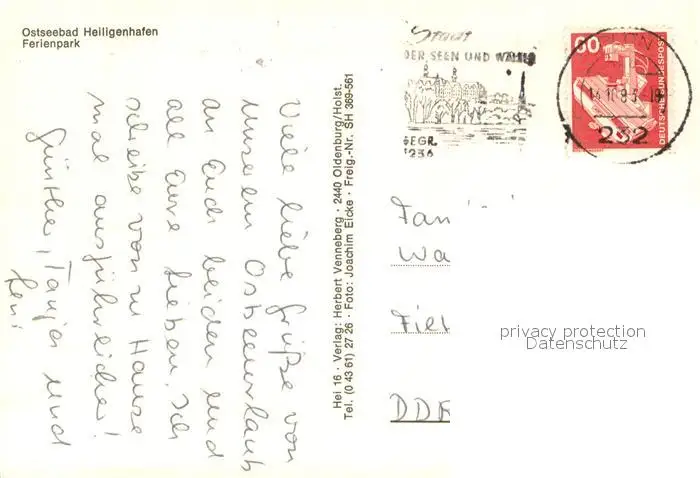 Ostseebad Heiligenhafen
Ferienpark
Viele liebe Grüße von
unserem Ostseeurlaub
an Euch beiden und
all Eure Lieben. Ich
schreibe von zu Hause
mal ausführlicher!
Günther, Tanja und
Hei 16 · Verlag: Herbert Venneberg · 2440 Oldenburg/Holst.
Tel. (0 43 61) 27 26 · Foto: Joachim Eicke · Freig.-Nr. SH 369-561
DER SEEN UND WÄLDER
GEGR.
1236
60
DEUTSCHE BUNDESPOST
232
Fam
Wa
DDR
privacy protection
Datenschutz